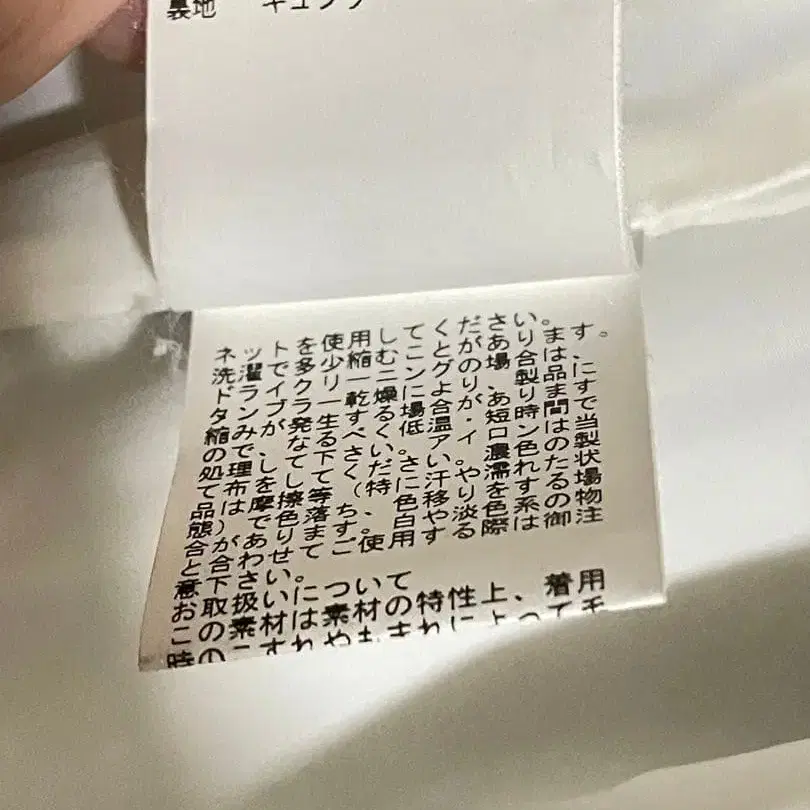 裏地 キュプラ
ネットを使用してください。
洗濯で多少縮むことがあります。
ドライクリーニングの場合は、
タンブラー乾燥により、製品に
縮みが発生する場合があります
ので、なるべく低温・短時間で
処理して下さい。アイロンは当
て布をしてください。濃色の製
品は摩擦等(特に汗や濡れた状
態)で色落ち、色移りする場
合があります。白や淡色系の物
と合わせてご使用する際は御注
意下さい。
お取扱いについて
この素材は素材の特性上、着用
時のこすれやもまれによって毛